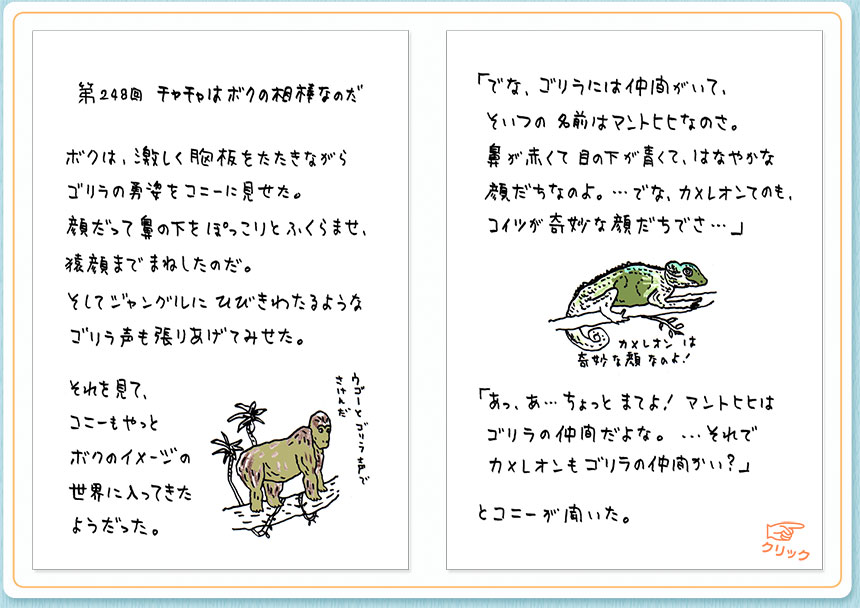 第248回 チャチャはボクの相棒なのだ
ボクは、激しく胸板をたたきながら
ゴリラの勇姿をコニーに見せた。
顔だって鼻の下をぽっこりとふくらませ、
猿顔までまねしたのだ。
そしてジャングルにひびきわたるような
ゴリラ声も張りあげてみせた。
それを見て、
コニーもやっと
ボクのイメージの
世界に入ってきた
ようだった。
ウゴーとゴリラ声で
さけんだ
「でな、ゴリラには仲間がいて、
そいつの名前はマントヒヒなのさ。
鼻が赤くて目の下が青くて、はなやかな
顔だちなのよ。…でな、カメレオンてのも、
コイツが奇妙な顔だちでさ…」
カメレオンは
奇妙な顔なのよ！
「あっ、あ…ちょっとまてよ！マントヒヒは
ゴリラの仲間だよな。…それで
カメレオンもゴリラの仲間かい？」
とコニーが聞いた。
クリック